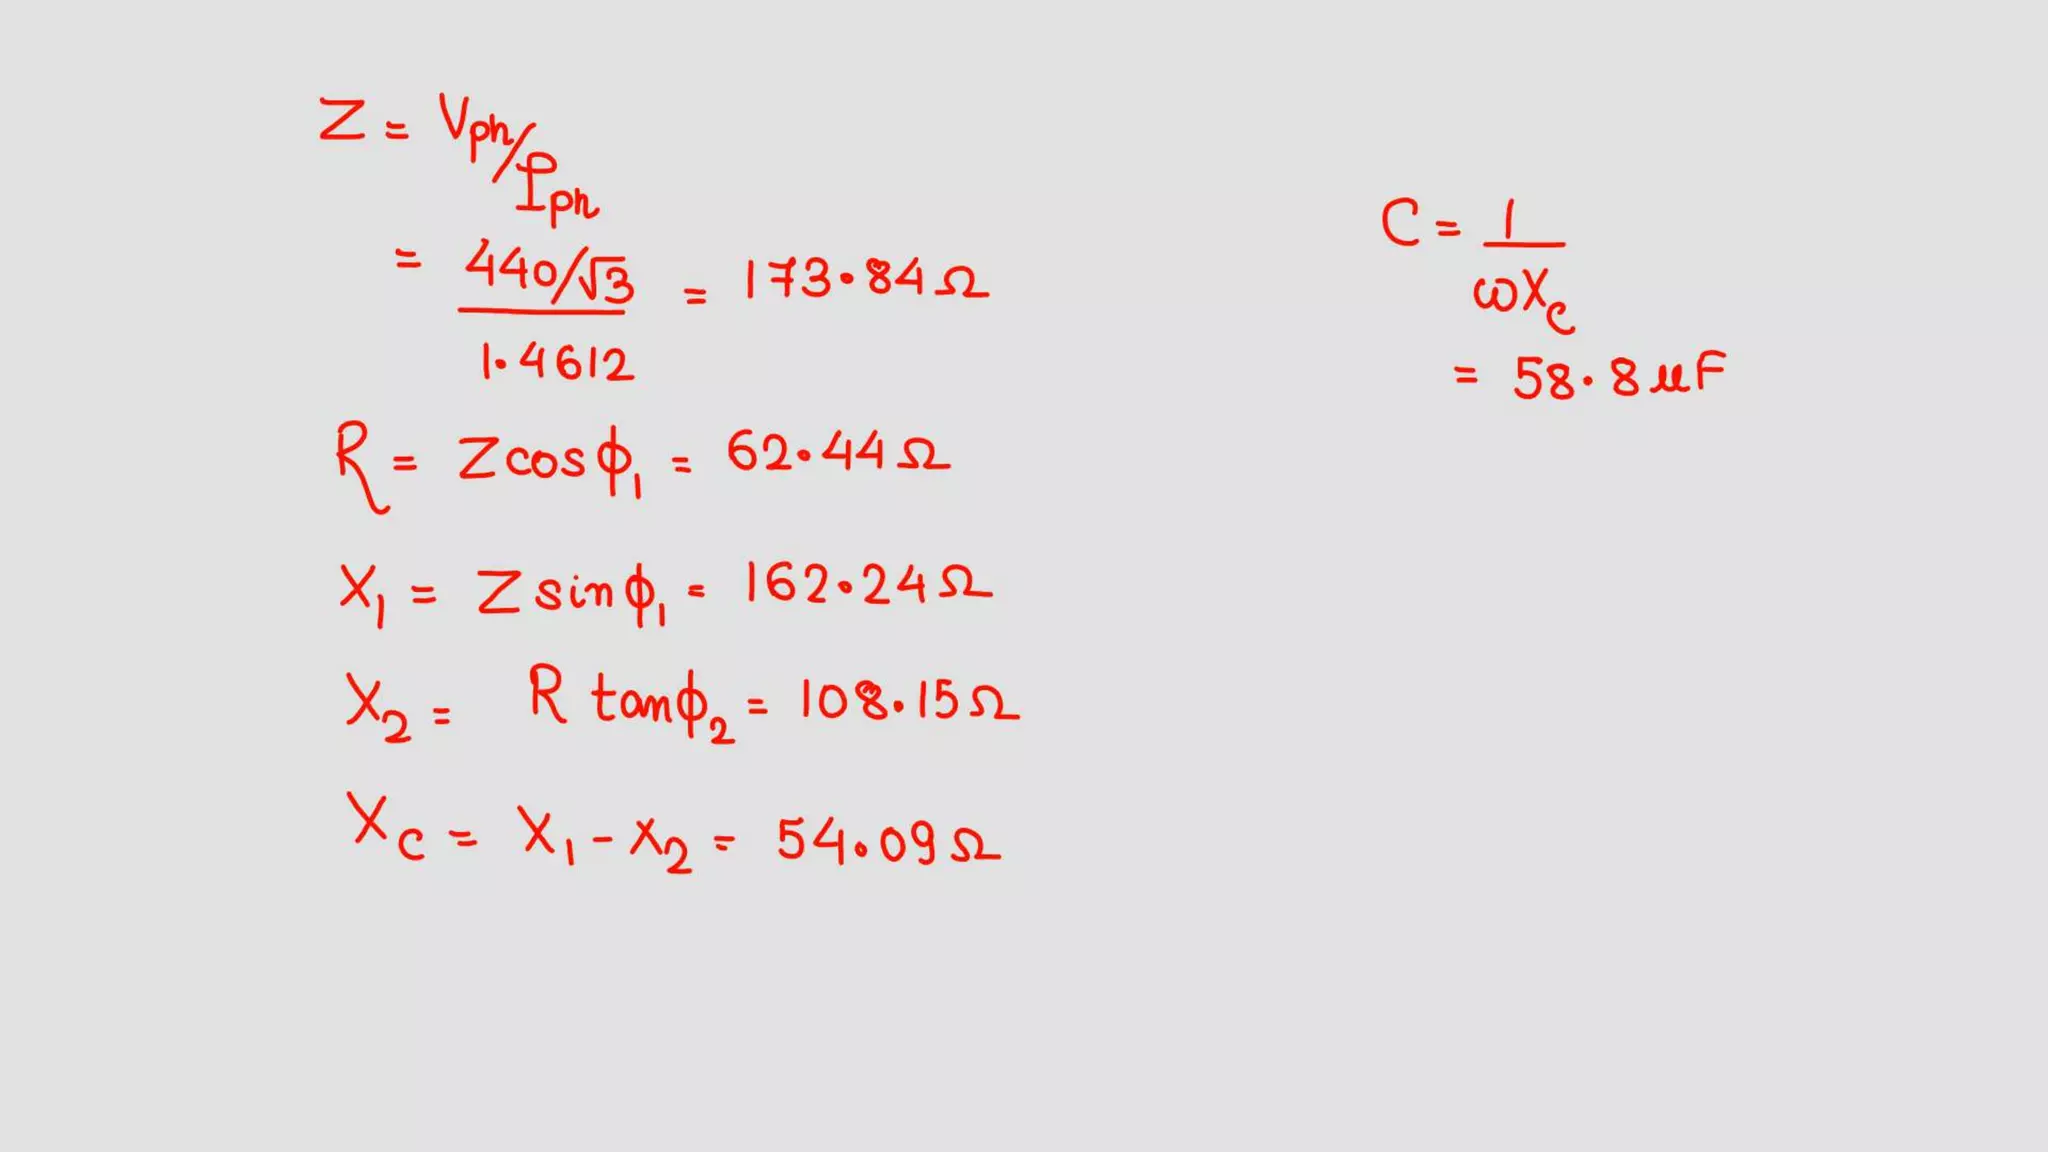 Z = Vph/Iph
= 440/√3 / 1.4612 = 173.84Ω
R = Z cos ϕ₁ = 62.44Ω
X₁ = Z sin ϕ₁ = 162.24Ω
X₂ = R tan ϕ₂ = 108.15Ω
Xc = X₁ - X₂ = 54.09Ω
C = 1/ωXc
= 58.8 μF